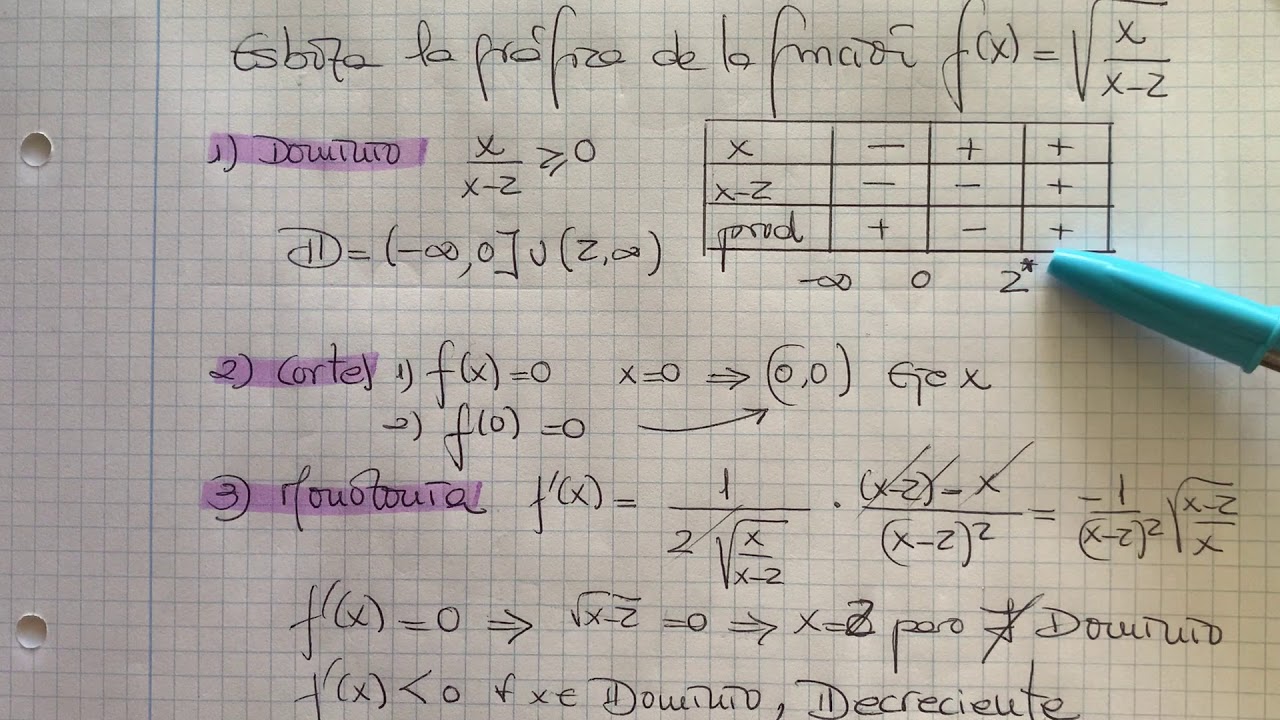 Esboza la gráfica de la función f(x) = √(x/(x-2))
1) Dominio x/(x-2) ≥ 0
x − + +
x-2 − − +
prod + − +
-∞ 0 2*
D = (-∞, 0] ∪ (2, ∞)
2) Cortes 1) f(x) = 0 x = 0 ⇒ (0,0) Eje x
2) f(0) = 0
3) Monotonía f'(x) = 1/(2√(x/(x-2))) · ((x-2) - x)/(x-2)² = -1/(x-2)² √((x-2)/x)
f'(x) = 0 ⇒ √(x-2) = 0 ⇒ x = 2 pero ∉ Dominio
f'(x) < 0 ∀ x ∈ Dominio, Decreciente